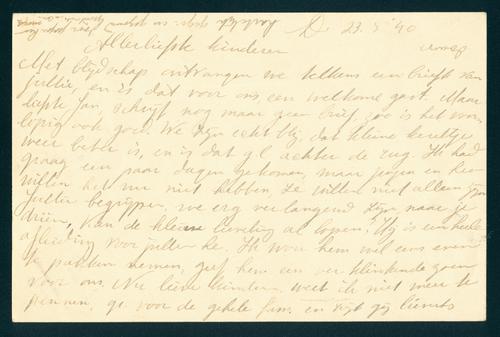 D. 23.5.'40
Allerliefste kinderen
Met blijdschap ontvangen we telkens een briefje van
jullie, en is dat voor ons, een welkome gast. Maar
liefste Jan, schrijf nog maar geen brief, zoo is het voor
lopig ook goed. We zijn echt blij, dat kleine kereltje
weer beter is, en is dat g.l. achter de rug. Ik had
graag een paar dagen gekomen, maar jongen en
willen het nu niet hebben. Ze willen niet alleen zijn
Jullie begrijpen, we erg verlangend zijn naar je
drieën, kan de kleine lieveling al lopen? Hij is een heele
afleiding voor jullie he. Ik wou hem wel eens even
te pakken nemen, geef hem een verklinkende zoen
voor ons. Nu lieve kinderen weet ik niet meer te
pennen, gr. voor de geheele fam. en zijt gij